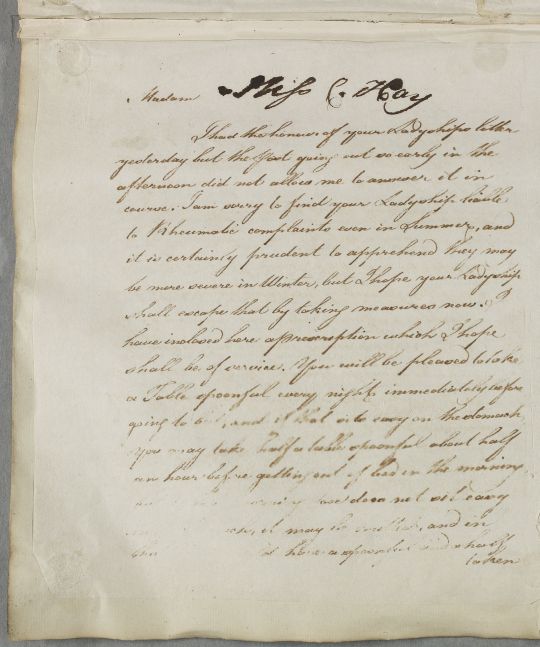 Madam Miss C. Hay
I had the honour of your Ladyships letter
yesterday but the Post going out so early in the
afternoon did not allow me to answer it in
course. I am sorry to find your Ladyship liable
to Rheumatic complaints even in Summer, and
it is certainly prudent to apprehend they may
be more severe in Winter, but I hope your Ladyship
shall escape that by taking measures now. I
have inclosed here a prescription which I hope
shall be of service. You will be pleased to take
a Table spoonful every night immediately before
going to bed, and if that sits easy on the stomach,
you may take half a table spoonful about half
an hour before getting out of bed in the morning
morning does not sit easy
it may be and in
have a spoonful and a half
taken